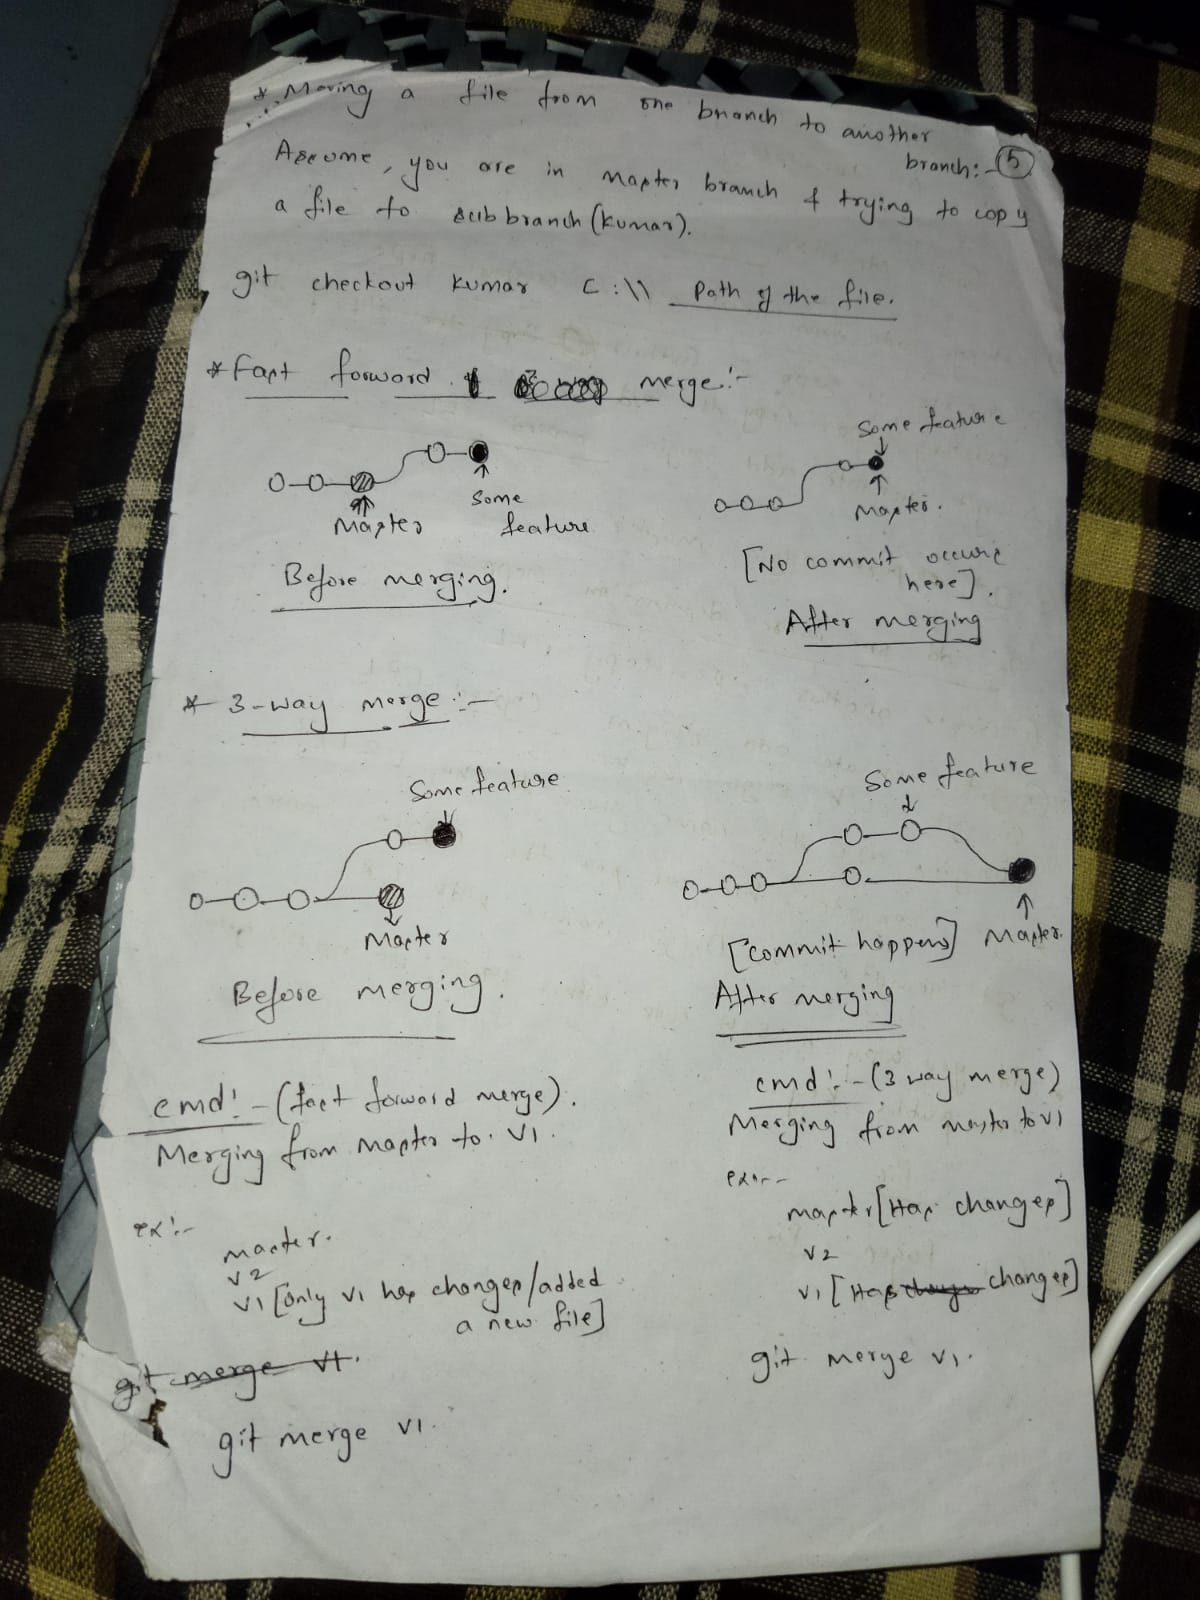 * Moving a file from one branch to another
branch:- 5
Assume, you are in master branch & trying to copy
a file to subbranch (kumar).
git checkout kumar C:\\ Path of the file.
* Fast forward merge:-
Some feature
Master
Some
feature
Master.
Before merging.
[No commit occurs
here].
After merging
* 3-way merge:-
Some feature
Some feature
Master
[Commit happens] Master.
Before merging.
After merging
cmd:- (fast forward merge).
Merging from master to V1.
ex:-
master.
V2
V1 [Only V1 has changes/added
a new file]
git merge V1.
git merge V1.
cmd:- (3 way merge)
Merging from master to V1
ex:-
master [Has changes]
V2
V1 [Has changes]
git merge V1.